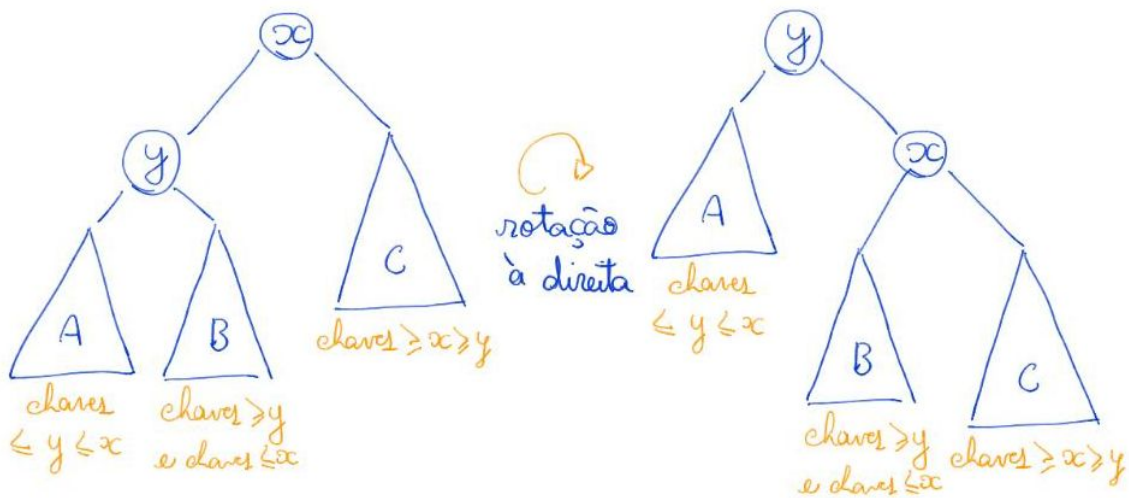 x
y
A
chaves
≤ y ≤ x
B
chaves ≥ y
e chaves ≤ x
C
chaves ≥ x ≥ y
rotação
à direita
y
A
chaves
≤ y ≤ x
x
B
chaves ≥ y
e chaves ≤ x
C
chaves ≥ x ≥ y